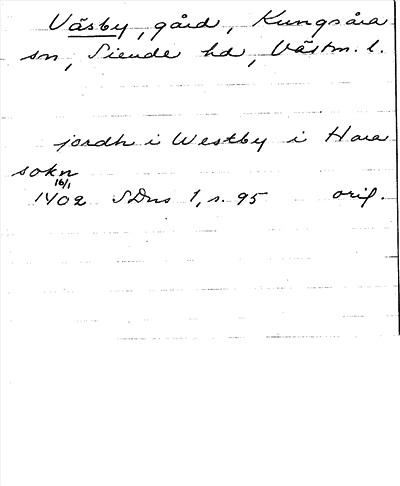 Väsby, gård, Kungsåra
sn, Siende hd, Västm. l.
jordh i Westby i Hara
sokn
16/1
1402 SDns 1, s. 95 orig.